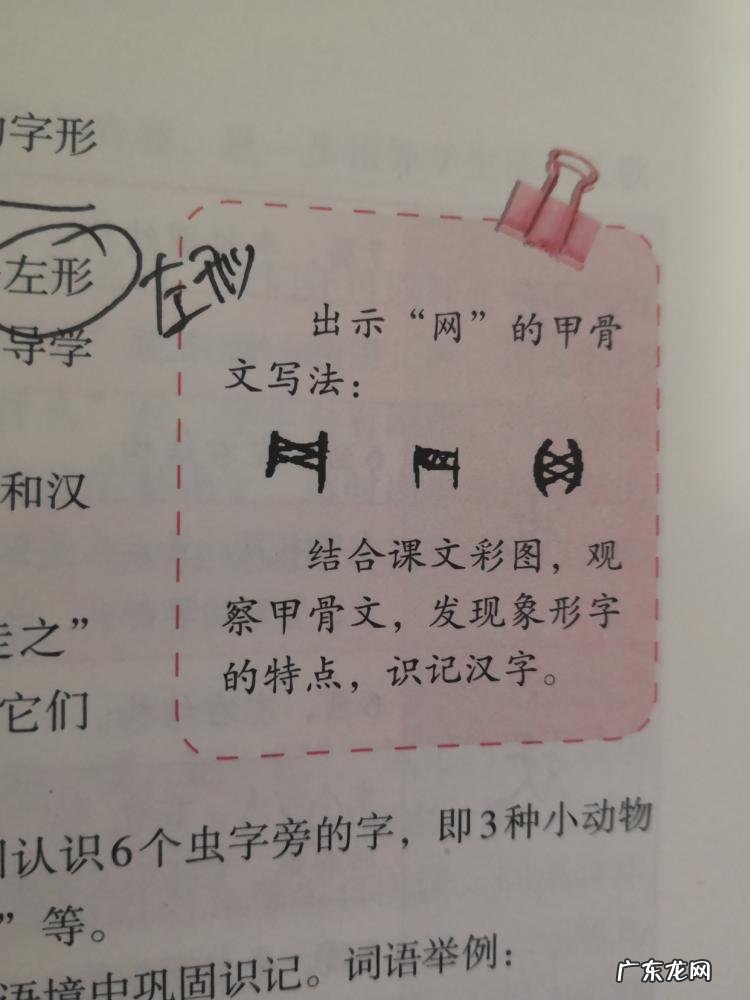 字形
左形
左形
导学
出示“网”的甲骨
文写法：
和汉
结合课文彩图，观
察甲骨文，发现象形字
的特点，识记汉字。
走之”
它们
认识6个虫字旁的字，即3种小动物
”等。
语境中巩固识记。词语举例：
广东龙网